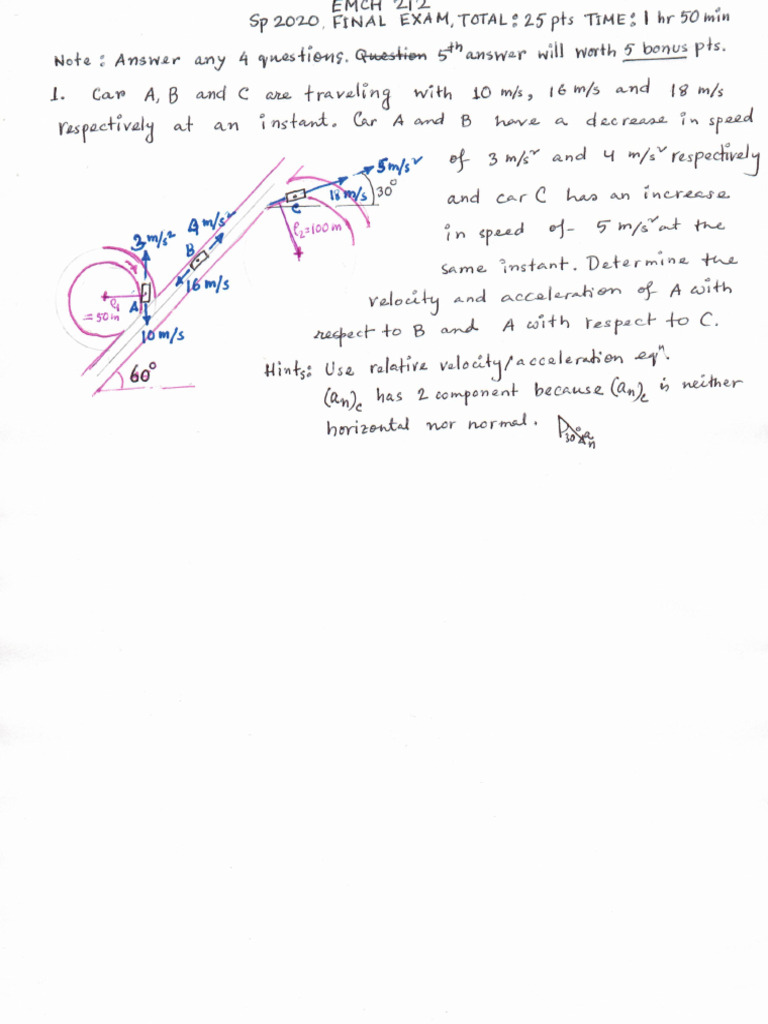 EMCH 212
Sp 2020, FINAL EXAM, TOTAL: 25 pts TIME: 1 hr 50 min
Note: Answer any 4 questions. Question 5th answer will worth 5 bonus pts.
1. Car A, B and C are traveling with 10 m/s, 16 m/s and 18 m/s
respectively at an instant. Car A and B have a decrease in speed
of 3 m/s² and 4 m/s² respectively
and car C has an increase
in speed of 5 m/s² at the
same instant. Determine the
velocity and acceleration of A with
respect to B and A with respect to C.
Hints: Use relative velocity/acceleration eqn.
(an)c has 2 component because (an)c is neither
horizontal nor normal. 30° an
5 m/s²
18 m/s
30°
C
ρ2=100m
4 m/s²
3 m/s²
B
16 m/s
ρ1
= 50m
A
10 m/s
60°